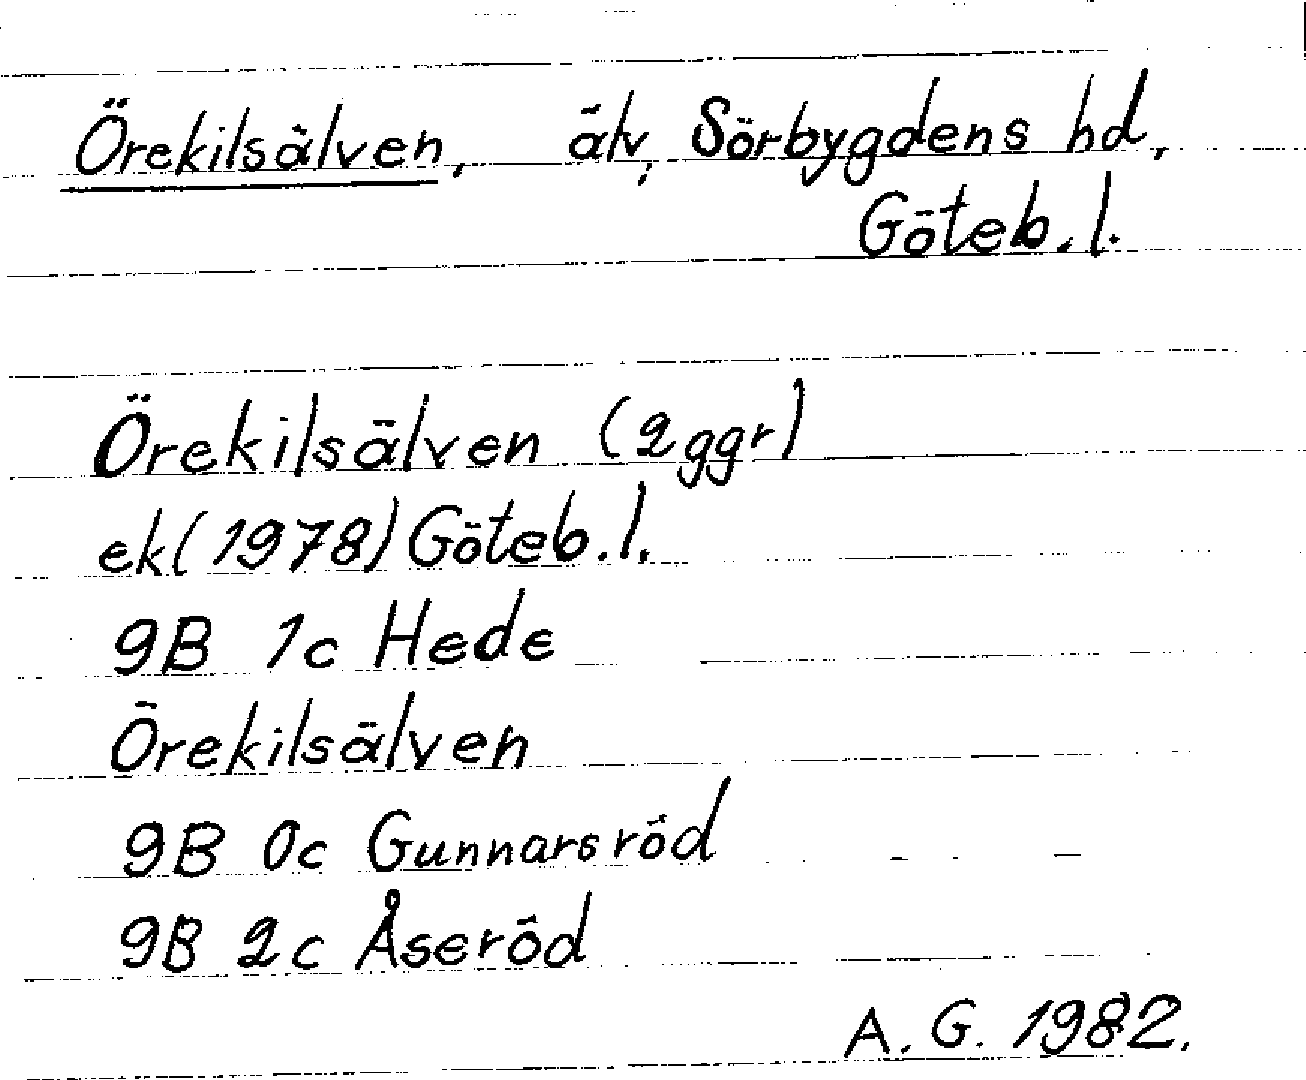 Örekilsälven, älv, Sörbygdens hd,
Göteb. l.
Örekilsälven (2 ggr)
ek (1978) Göteb. l.
9B 1c Hede
Örekilsälven
9B 0c Gunnarsröd
9B 2c Åseröd
A. G. 1982.